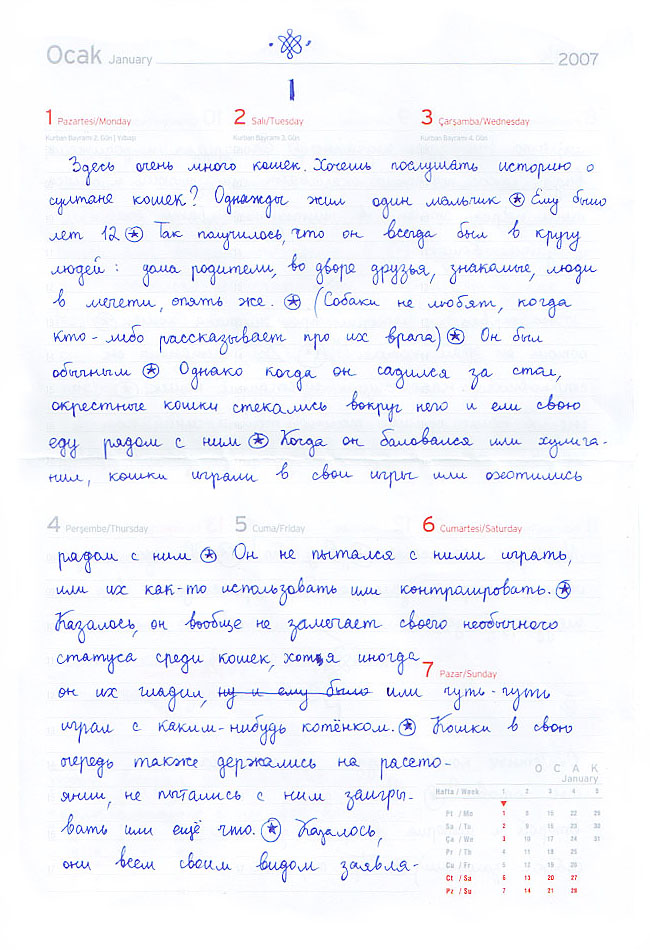 Ocak January 2007
1
1 Pazartesi/Monday 2 Salı/Tuesday 3 Çarşamba/Wednesday
Kurban Bayramı 2. Gün | Yılbaşı Kurban Bayramı 3. Gün Kurban Bayramı 4. Gün
Здесь очень много кошек. Хочешь послушать историю о
султане кошек? Однажды жил один мальчик ⍟ Ему было
лет 12 ⍟ Так получилось, что он всегда был в кругу
людей: дома родители, во дворе друзья, знакомые, люди
в мечети, опять же. ⍟ (Собаки не любят, когда
кто-либо рассказывает про их врага) ⍟ Он был
обычным ⍟ Однако когда он садился за стол,
окрестные кошки стекались вокруг него и ели свою
еду рядом с ним ⍟ Когда он баловался или хулига-
нил, кошки играли в свои игры или охотились
4 Perşembe/Thursday 5 Cuma/Friday 6 Cumartesi/Saturday
рядом с ним ⍟ Он не пытался с ними играть,
или их как-то использовать или контролировать. ⍟
Казалось, он вообще не замечает своего необычного
статуса среди кошек, хотя иногда
7 Pazar/Sunday
он их гладил, ну и ему было или чуть-чуть
играл с каким-нибудь котёнком. ⍟ Кошки в свою
очередь также держались на рассто-
янии, не пытались с ним заигры-
вать или ещё что. ⍟ Казалось,
они всем своим видом заявля-
O C A K
January
Hafta / Week 1 2 3 4 5
Pt / Mo 1 8 15 22 29
Sa / Tu 2 9 16 23 30
Ça / We 3 10 17 24 31
Pr / Th 4 11 18 25
Cu / Fr 5 12 19 26
Ct / Sa 6 13 20 27
Pz / Su 7 14 21 28